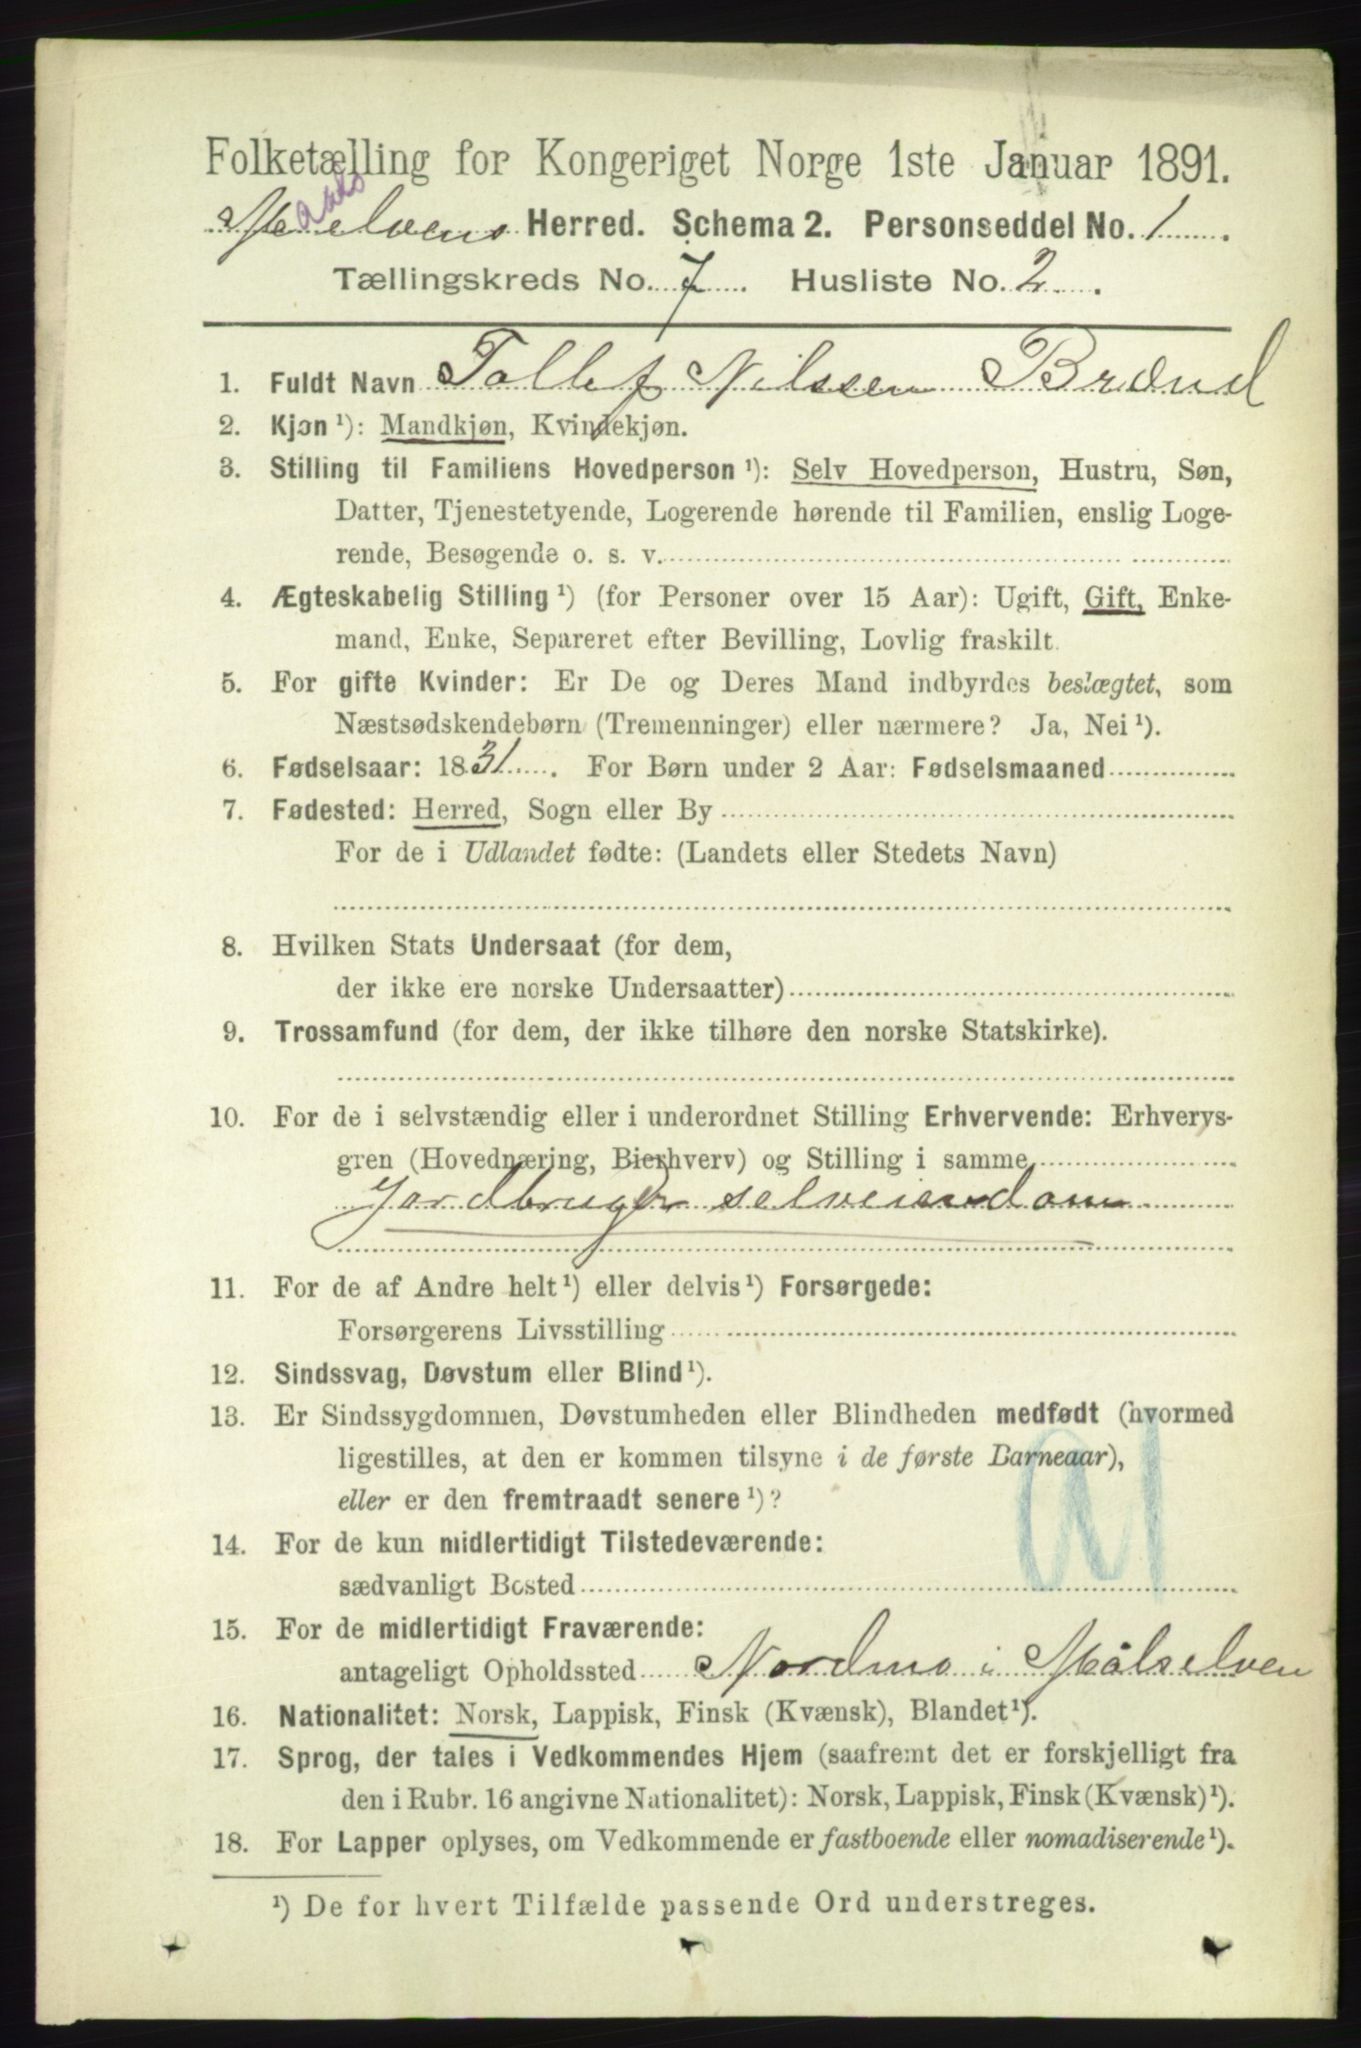 Folketælling for Kongeriget Norge 1ste Januar 1891.
Maalselvens Herred. Schema 2. Personseddel No. 1.
Tællingskreds No. 7. Husliste No. 2.
1. Fuldt Navn Tollef Nilssen Brænd
2. Kjøn ¹): Mandkjøn, Kvindekjøn.
3. Stilling til Familiens Hovedperson ¹): Selv Hovedperson, Hustru, Søn,
Datter, Tjenestetyende, Logerende hørende til Familien, enslig Loge-
rende, Besøgende o. s. v.
4. Ægteskabelig Stilling ¹) (for Personer over 15 Aar): Ugift, Gift, Enke-
mand, Enke, Separeret efter Bevilling, Lovlig fraskilt.
5. For gifte Kvinder: Er De og Deres Mand indbyrdes beslægtet, som
Næstsødskendebørn (Tremenninger) eller nærmere? Ja, Nei ¹).
6. Fødselsaar: 1831. For Børn under 2 Aar: Fødselsmaaned
7. Fødested: Herred, Sogn eller By
For de i Udlandet fødte: (Landets eller Stedets Navn)
8. Hvilken Stats Undersaat (for dem,
der ikke ere norske Undersaatter)
9. Trossamfund (for dem, der ikke tilhøre den norske Statskirke).
10. For de i selvstændig eller i underordnet Stilling Erhvervende: Erhvervs-
gren (Hovednæring, Bierhverv) og Stilling i samme
Jordbruger selveiendom
11. For de af Andre helt ¹) eller delvis ¹) Forsørgede:
Forsørgerens Livsstilling
12. Sindssvag, Døvstum eller Blind ¹).
13. Er Sindssygdommen, Døvstumheden eller Blindheden medfødt (hvormed
ligestilles, at den er kommen tilsyne i de første Barneaar),
eller er den fremtraadt senere ¹)?
14. For de kun midlertidigt Tilstedeværende:
sædvanligt Bosted
15. For de midlertidigt Fraværende:
antageligt Opholdssted Nordmo i Målselven
16. Nationalitet: Norsk, Lappisk, Finsk (Kvænsk), Blandet ¹).
17. Sprog, der tales i Vedkommendes Hjem (saafremt det er forskjelligt fra
den i Rubr. 16 angivne Nationalitet): Norsk, Lappisk, Finsk (Kvænsk) ¹).
18. For Lapper oplyses, om Vedkommende er fastboende eller nomadiserende ¹).
¹) De for hvert Tilfælde passende Ord understreges.